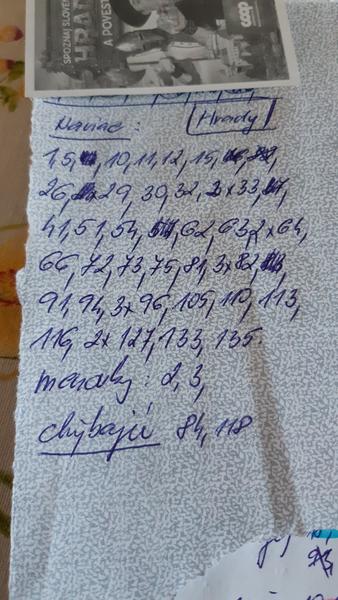 SPOZNAJ SLOVEN
HRA
A POVEST
coop
Naviac: Hrady
1, 5, 10, 11, 12, 15,
26, 29, 30, 32, 3x33,
41, 51, 54, 62, 63, 2x64,
66, 72, 73, 75, 81, 3x82,
91, 94, 3x96, 105, 110, 113,
116, 2x127, 133, 135.
menovky: 2, 3,
chýbajú 84, 118